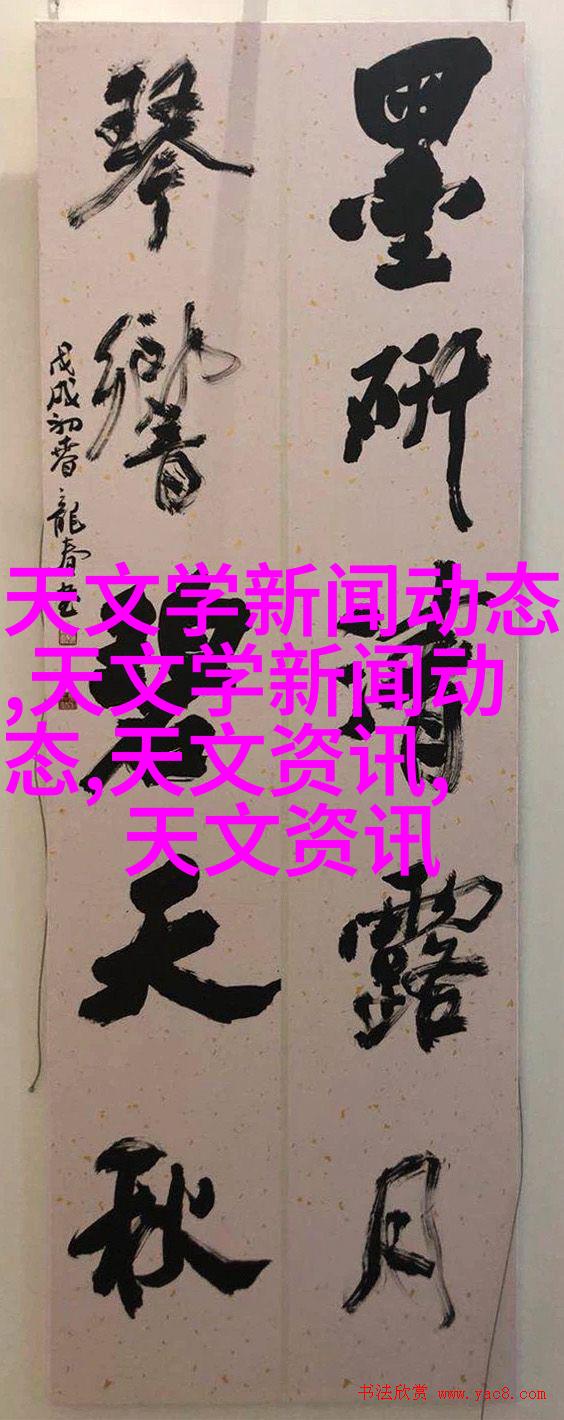 墨研清露月
琴響碧天秋
戊戌初春龍春书
天文学新闻动态
,天文学新闻动
态,天文资讯,
天文资讯
书法欣赏 www.yac8.com